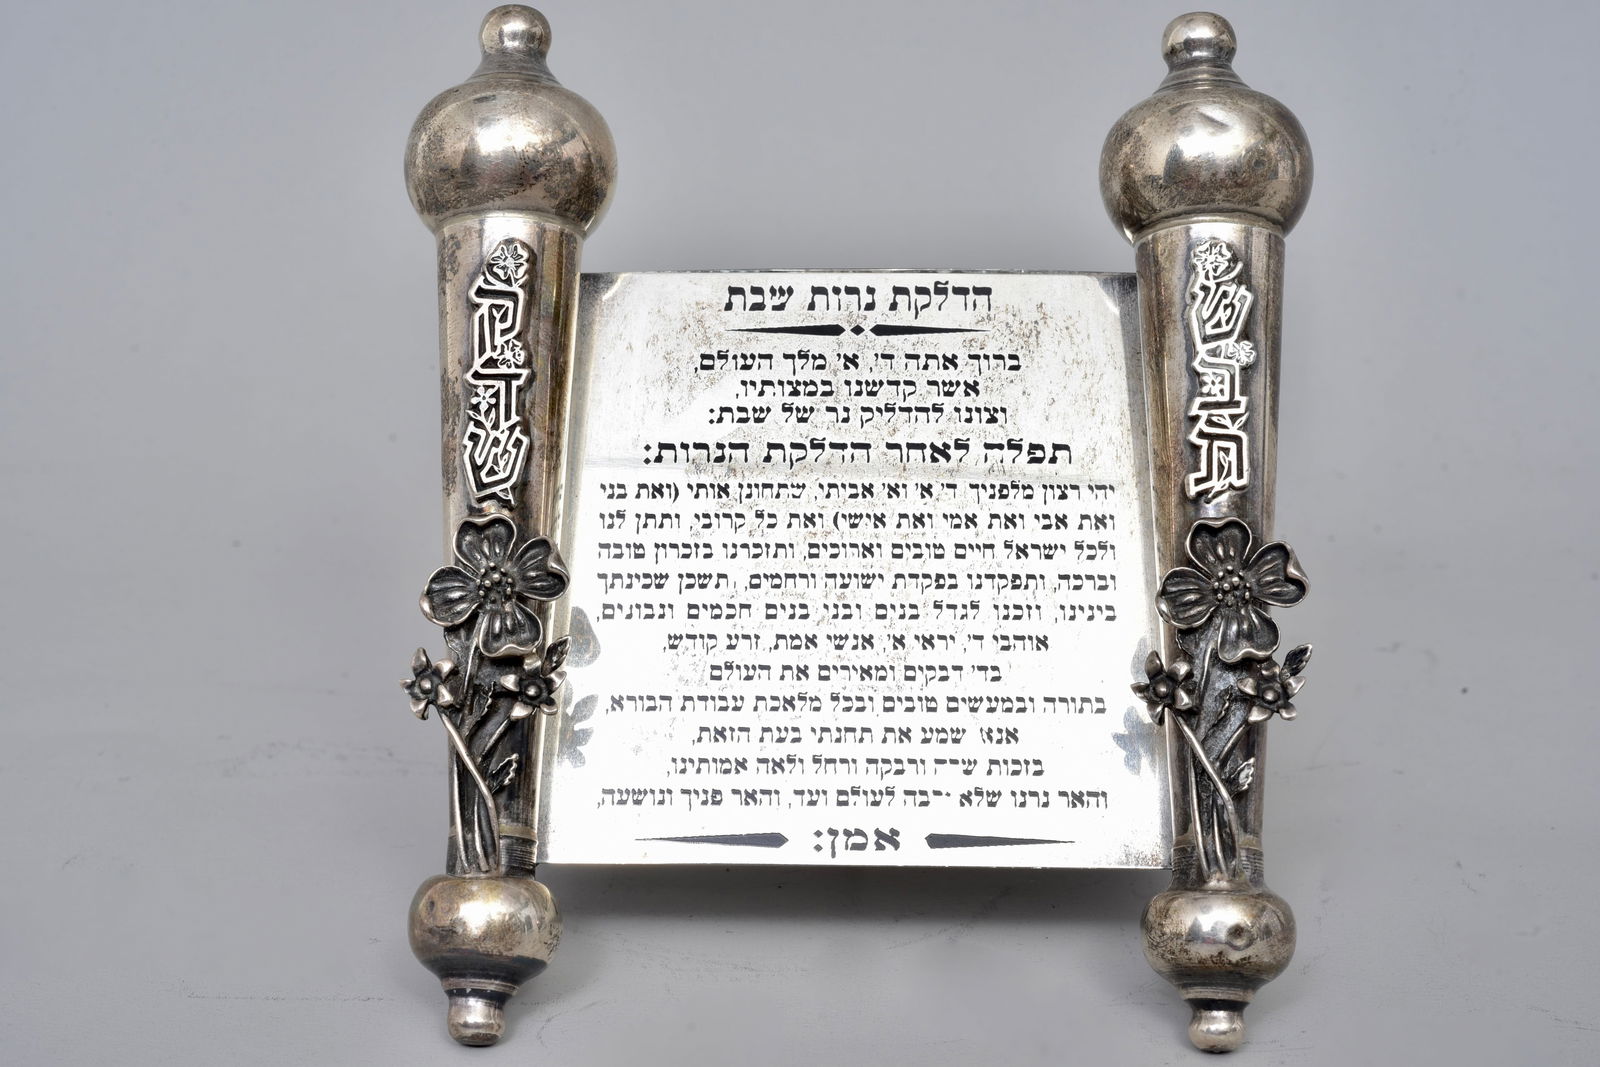 שבת
קדש
הדלקת נרות שבת
ברוך אתה ד', א' מלך העולם,
אשר קדשנו במצותיו,
וצונו להדליק נר של שבת:
תפלה לאחר הדלקת הנרות:
יהי רצון מלפניך ד' א' וא' אבותי, שתחונן אותי (ואת בני
ואת אבי ואת אמי ואת אישי) ואת כל קרובי, ותתן לנו
ולכל ישראל חיים טובים וארוכים, ותזכרנו בזכרון טובה
וברכה, ותפקדנו בפקדת ישועה ורחמים, תשכן שכינתך
בינינו, וזכנו לגדל בנים ובני בנים חכמים ונבונים,
אוהבי ד', יראי א', אנשי אמת, זרע קודש,
בד' דבקים ומאירים את העולם
בתורה ובמעשים טובים ובכל מלאכת עבודת הבורא,
אנא שמע את תחנתי בעת הזאת,
בזכות ורבקה ורחל ולאה אמותינו,
והאר נרנו שלא לעולם ועד, והאר פניך ונושעה,
אמן: